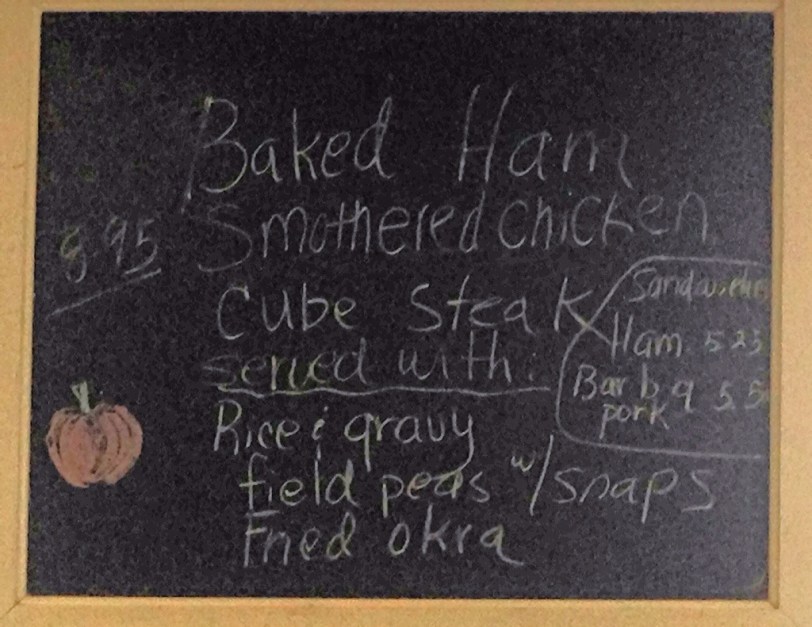 Baked Ham
8.95 Smothered chicken
Cube Steak
served with:
Rice & gravy
field peas w/ snaps
Fried okra
Sandwiches
Ham 5 25
Bar b q 5.5
pork